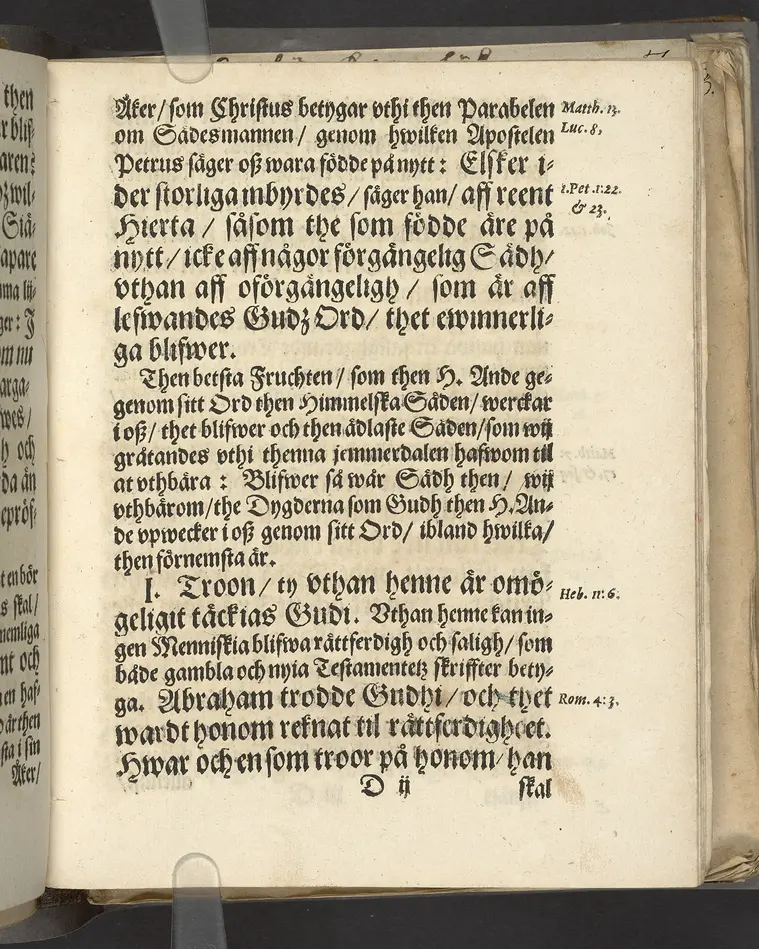 Åker/ som Christus betygar vthi then Parabelen
om Sädesmannen/ genom hwilken Apostelen
Petrus säger oß wara födde på nytt: Elsker i-
der storliga inbyrdes/ säger han/ aff reent
Hierta/ såsom the som födde äre på
nytt/ icke aff någor förgängelig Sädh/
vthan aff oförgängeligh/ som är aff
lefwandes Gudz Ord/ thet ewinnerli-
ga blifwer.
Then betsta Fruchten/ som then H. Ande ge-
genom sitt Ord then Himmelska Säden/ werckar
i oß/ thet blifwer och then ädlaste Säden/ som wij
gråtandes vthi thenna jemmerdalen hafwom til
at vthbära: Blifwer så wår Sädh then/ wij
vthbärom/ the Dygderna som Gudh then H. An-
de vpwecker i oß genom sitt Ord/ ibland hwilka/
then förnemsta är.
I. Troon/ ty vthan henne är omö-
geligit täckias Gudi. Vthan henne kan in-
gen Menniskia blifwa rättferdigh och saligh/ som
både gambla och nyia Testamentetz skriffter bety-
ga. Abraham trodde Gudhi/ och thet
wardt honom reknat til rättferdigheet.
Hwar och en som troor på honom/ han
D ij skal
Matth. 13.
Luc. 8,
1.Pet.1:22.
& 23.
Heb. 11:6.
Rom. 4:3.
then
aren:
Siä-
apare
ger: I
arga-
h och
da än
ten bör
s skal/
nt och
Åker/